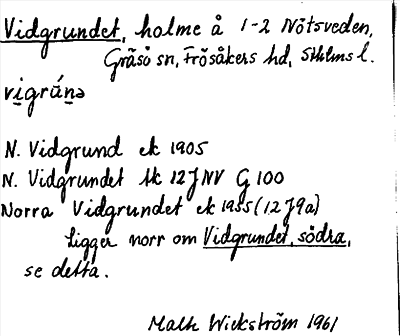 Vidgrundet, holme å 1-2 Nötsveden,
Gräsö sn, Frösåkers hd, Sthlms l.
vigrúnə
N. Vidgrund ek 1905
N. Vidgrundet tk 12J NV G 100
Norra Vidgrundet ek 1955 (12J9a)
ligger norr om Vidgrundet, södra,
se detta.
Malte Wickström 1961